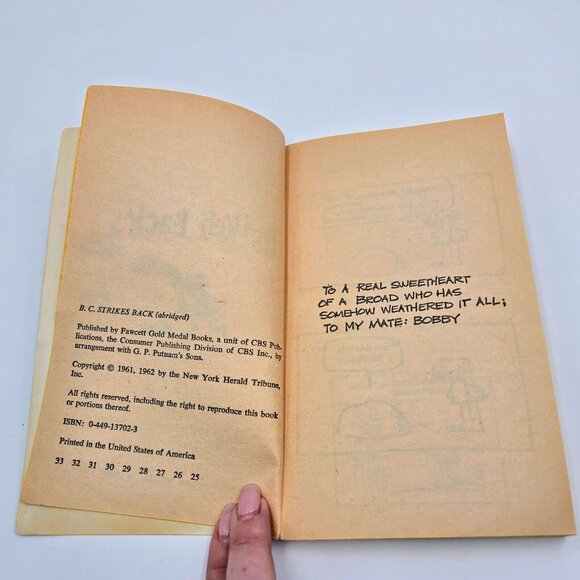 B. C. STRIKES BACK (abridged)
Published by Fawcett Gold Medal Books, a unit of CBS Pub-
lications, the Consumer Publishing Division of CBS Inc., by
arrangement with G. P. Putnam's Sons.
Copyright © 1961, 1962 by the New York Herald Tribune,
Inc.
All rights reserved, including the right to reproduce this book
or portions thereof.
ISBN: 0-449-13702-3
Printed in the United States of America
33 32 31 30 29 28 27 26 25
TO A REAL SWEETHEART
OF A BROAD WHO HAS
SOMEHOW WEATHERED IT ALL;
TO MY MATE: BOBBY